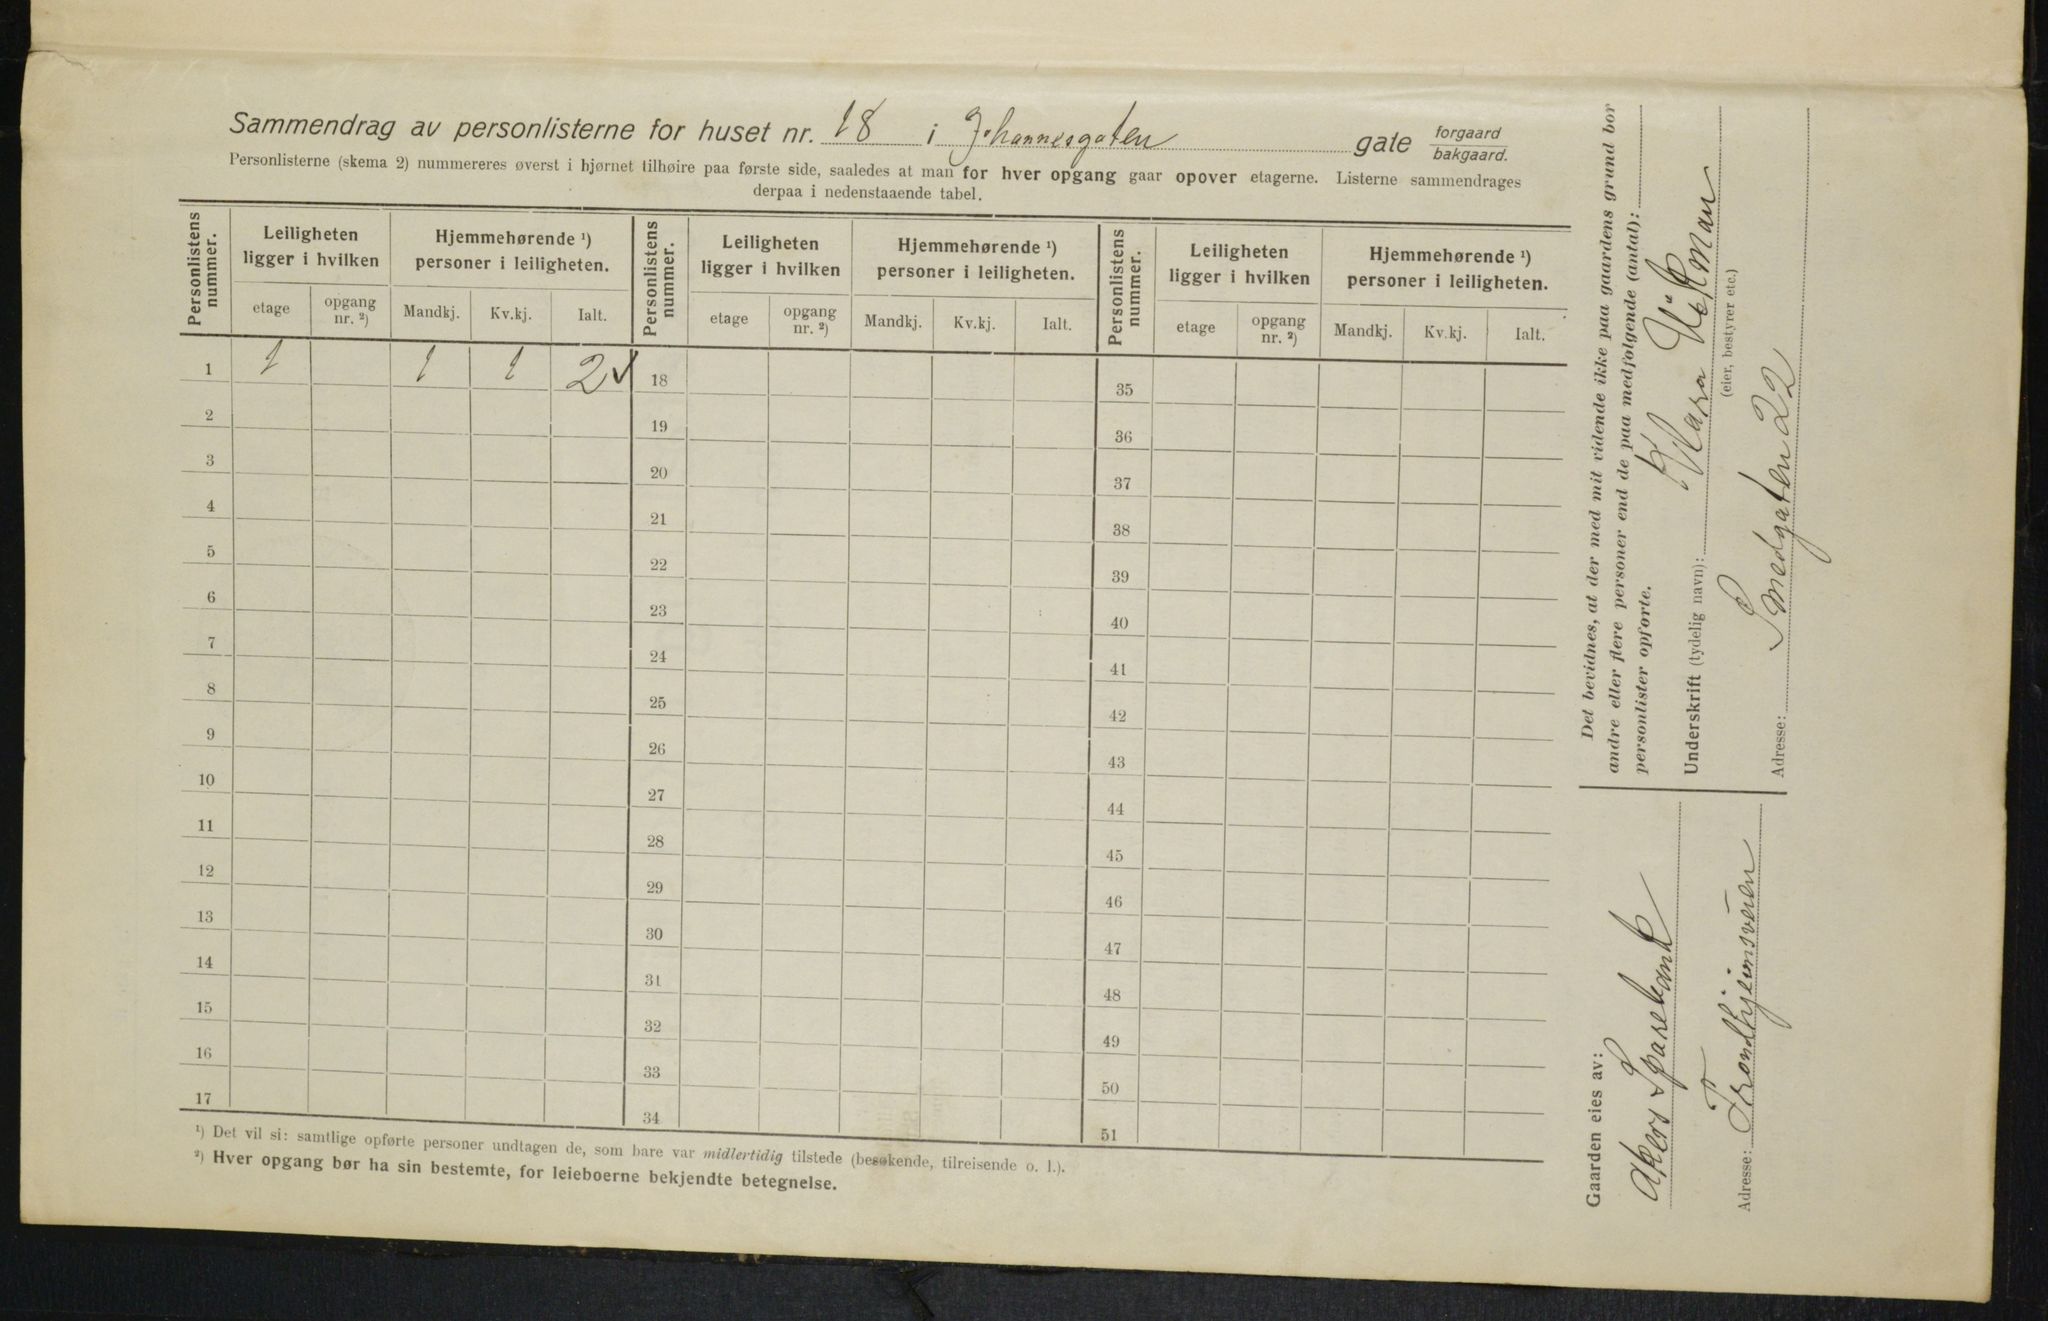 Sammendrag av personlisterne for huset nr. 18 i Johannesgaten gate forgaard bakgaard.
Personlisterne (skema 2) nummereres øverst i hjørnet tilhøire paa første side, saaledes at man for hver opgang gaar opover etagerne. Listerne sammendrages
derpaa i nedenstaaende tabel.
Personlistens nummer. Leiligheten ligger i hvilken Hjemmehørende ¹) personer i leiligheten. Personlistens nummer. Leiligheten ligger i hvilken Hjemmehørende ¹) personer i leiligheten. Personlistens nummer. Leiligheten ligger i hvilken Hjemmehørende ¹) personer i leiligheten.
etage opgang nr. ²) Mandkj. Kv.kj. Ialt. etage opgang nr. ²) Mandkj. Kv.kj. Ialt. etage opgang nr. ²) Mandkj. Kv.kj. Ialt.
1 1 1 1 2 ✓ 18 35
2 19 36
3 20 37
4 21 38
5 22 39
6 23 40
7 24 41
8 25 42
9 26 43
10 27 44
11 28 45
12 29 46
13 30 47
14 31 48
15 32 49
16 33 50
17 34 51
¹) Det vil si: samtlige opførte personer undtagen de, som bare var midlertidig tilstede (besøkende, tilreisende o. l.).
²) Hver opgang bør ha sin bestemte, for leieboerne bekjendte betegnelse.
Det bevidnes, at der med mit vidende ikke paa gaardens grund bor
andre eller flere personer end de paa medfølgende (antal):
personlister opførte.
Underskrift (tydelig navn): Klara
(eier, bestyrer etc.)
Adresse: Smedgaten 22
Gaarden eies av:
Akers Sparebank
Adresse: Trondhjemsveien